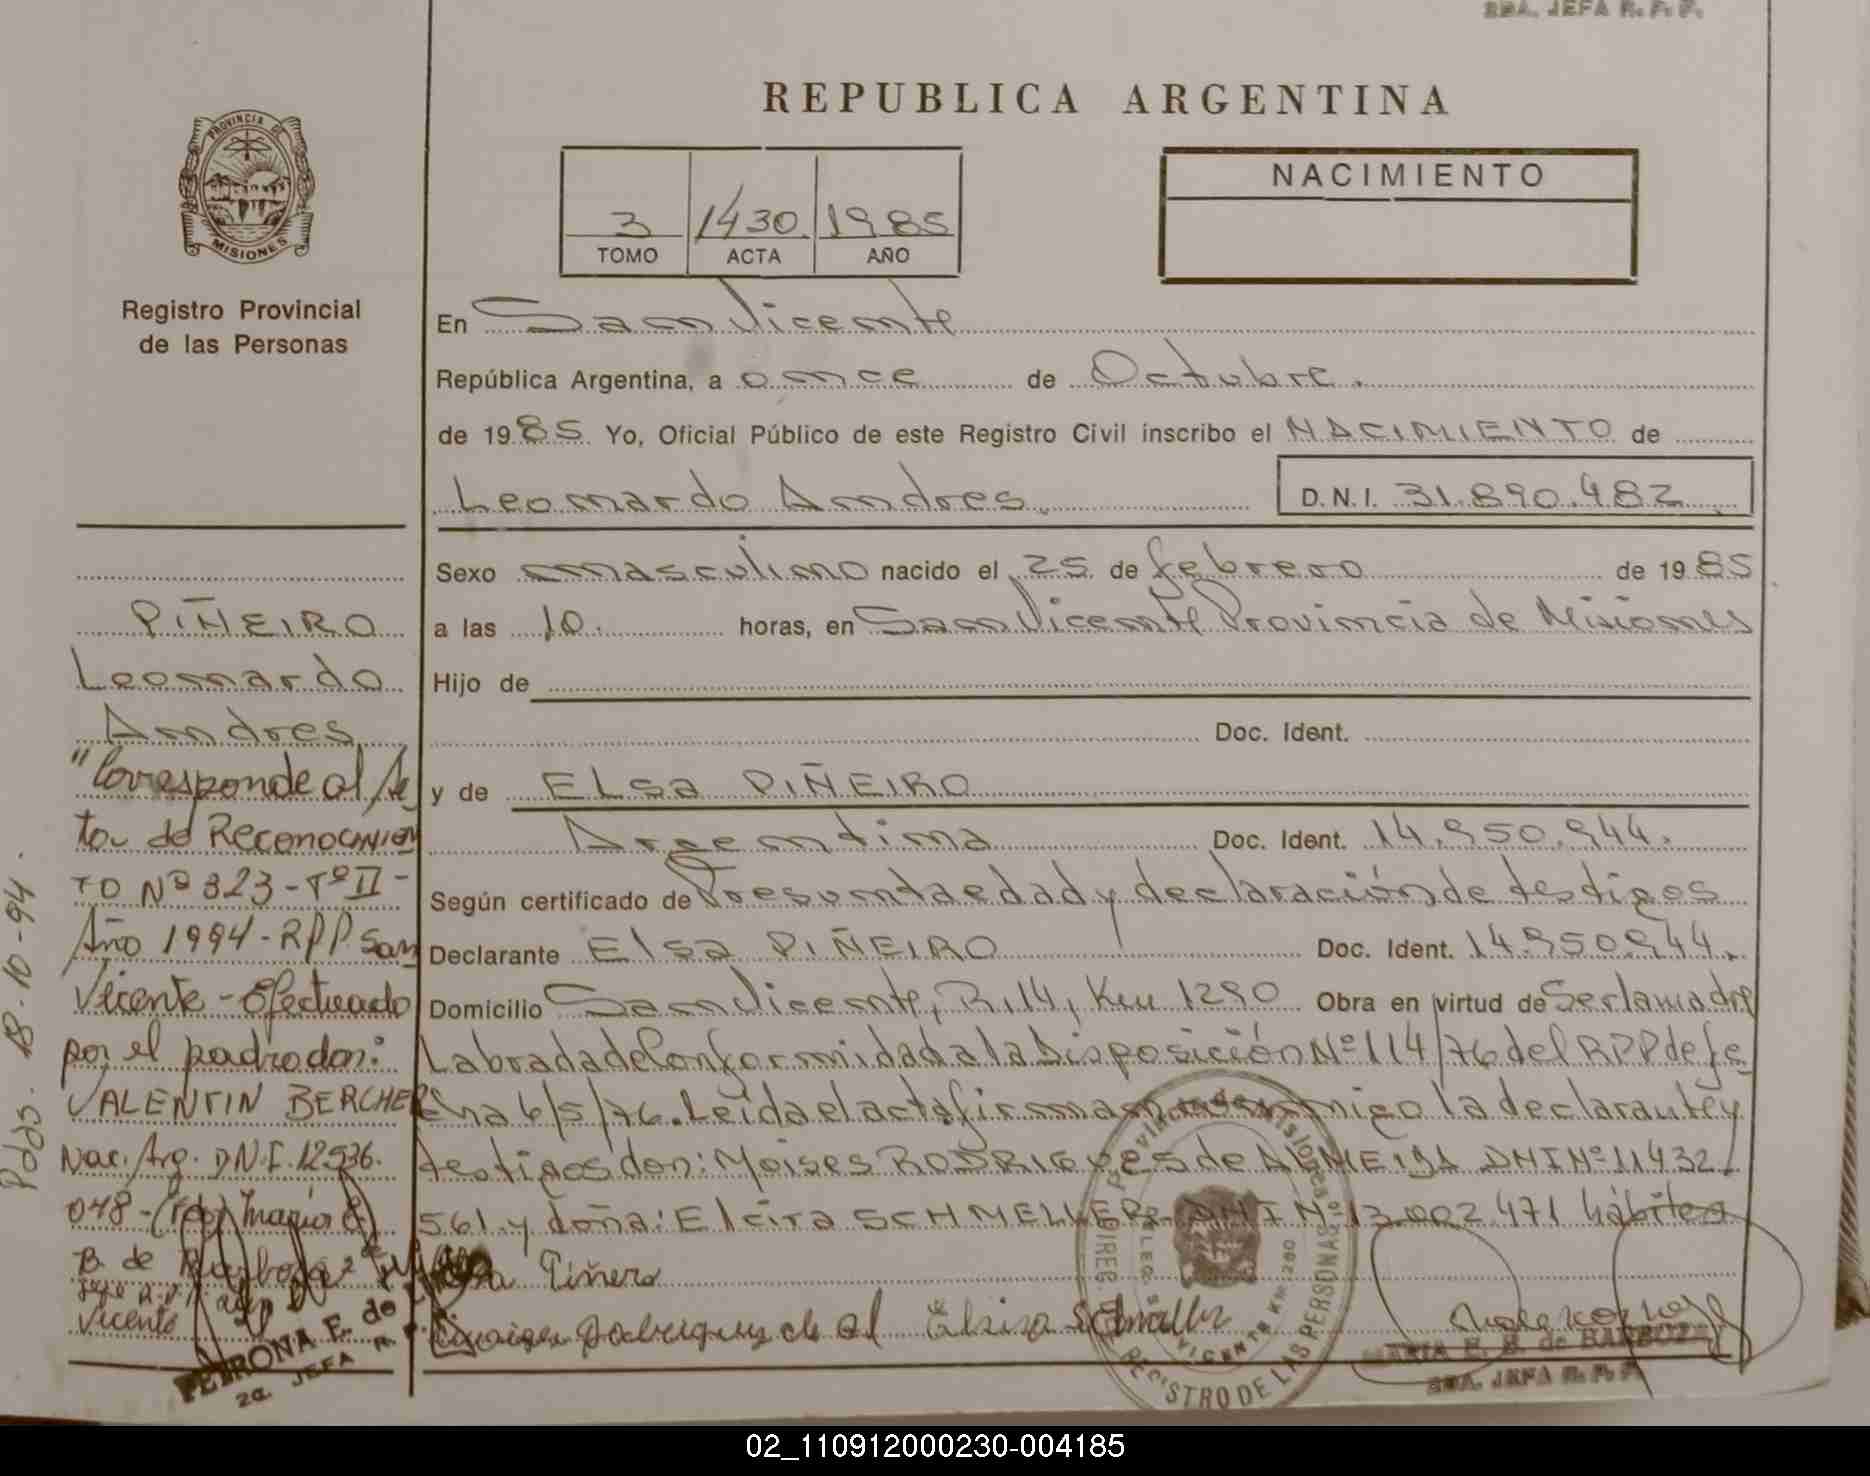 SDA. JEFA R. P. P.
REPUBLICA ARGENTINA
PROVINCIA DE
MISIONES
Registro Provincial
de las Personas
3 1430 1985
TOMO ACTA AÑO
NACIMIENTO
En San Vicente
República Argentina, a once de Octubre.
de 1985 Yo, Oficial Público de este Registro Civil inscribo el NACIMIENTO de
Leonardo Andres. D.N.I. 31.890.482
Sexo masculino nacido el 25 de febrero de 1985
a las 10. horas, en San Vicente Provincia de Misiones
Hijo de
Doc. Ident.
y de ELsa PIÑEIRO
Argentina Doc. Ident. 14.950.944.
Según certificado de Presunta edad y declaración de testigos
Declarante Elsa PIÑEIRO Doc. Ident. 14.950.944.
Domicilio San Vicente, R.14, Km 1290 Obra en virtud de Ser la madre
Labrada de Conformidad a la Disposición Nº 114/76 del RPP de fe
cha 6/5/76. Leída el acta firman conmigo la declarante y
testigos don: Moises RODRIGUES de ALMEIDA DNI Nº 11.432.
561 y doña: Elcira SCHMELLER DNI Nº 13.002.471 hábiles
Elsa Piñero
MARIA E. B. de BARBOZA
SDA. JEFA R. P. P.
PIÑEIRO
Leonardo
Andres
"Corresponde al Ac
ta de Reconocimien
TO Nº 323 - Tº II -
Año 1994 - RPP San
Vicente - Efectuado
por el padre don:
VALENTIN BERCHER
Nac. Arg. D.N.I. 12.536.
048 - (Fdo) María E
B. de Barboza 2da
Jefe R.P.P. San
Vicente
PETRONA E. de
2a. JEFA R. P. P.
Pdas. 18-10-94.
Provincia de Misiones
DIREC. REGISTRO DE LAS PERSONAS
DELEG. S. VICENTE KM. 280
02_110912000230-004185